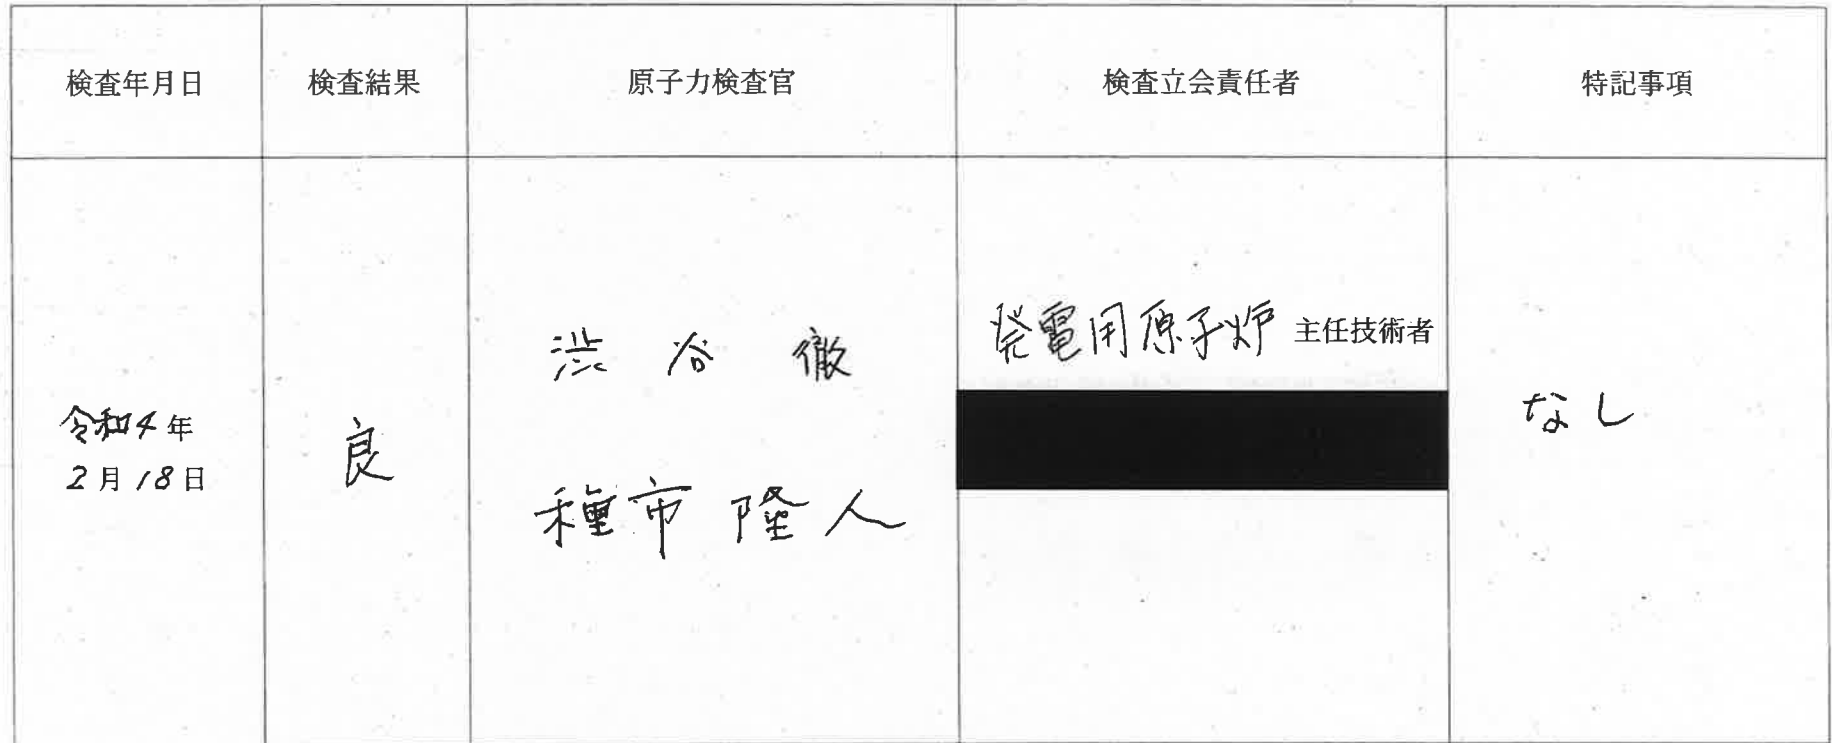 検査年月日
検査結果
原子力検査官
検査立会責任者
特記事項
令和4年
2月18日
良
渋谷 徹
種市 隆人
発電用原子炉 主任技術者
なし